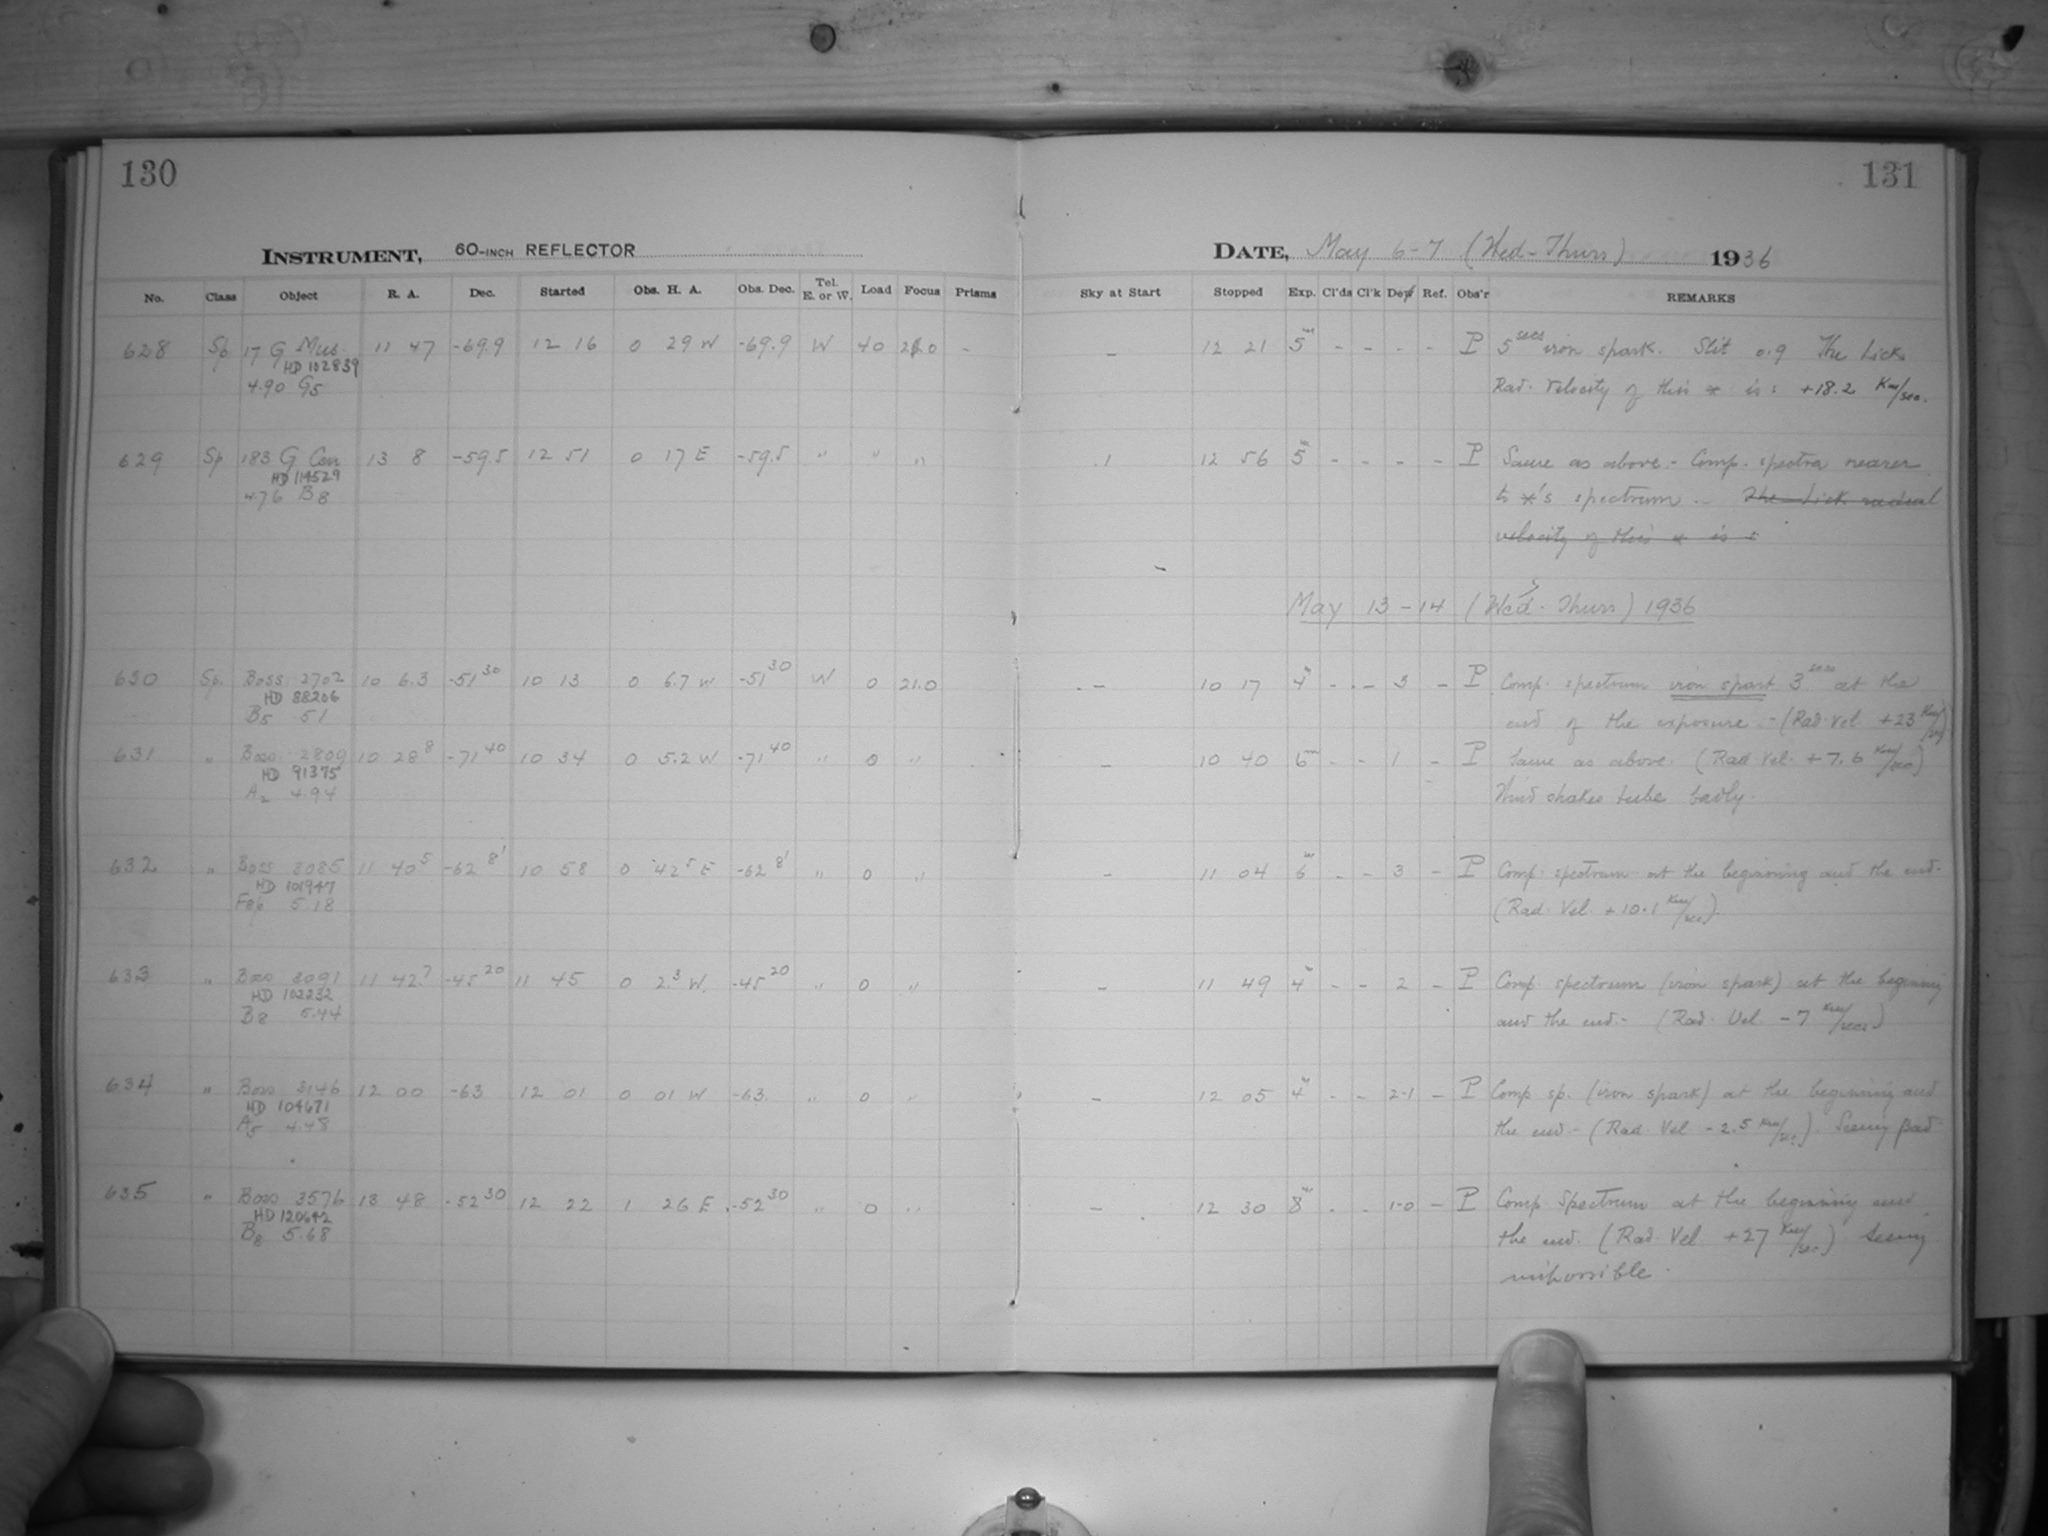 130
131
INSTRUMENT, 60-INCH REFLECTOR
DATE, May 6-7 (Wed-Thurs) 1936
No. Class Object R. A. Dec. Started Obs. H. A. Obs. Dec. Tel. E. or W. Load Focus Prisms Sky at Start Stopped Exp. Cl'ds Cl'k Dew Ref. Obs'r REMARKS
628 Sp 17 G Mus. 11 47 -69.9 12 16 0 29 W -69.9 W 40 21.0 - - 12 21 5m - - - - P 5 secs iron spark. Slit 0.9 The Lick
HD 102839
4.90 G5 Rad. Velocity of this * is: +18.2 Km/sec.
629 Sp 183 G Cen 13 8 -59.5 12 51 0 17 E -59.5 " " " .1 12 56 5m - - - - P Same as above.- Comp. spectra nearer
HD 114529
4.76 B8 to *'s spectrum.- The Lick radial
velocity of this * is :
May 13-14 (Wed-Thurs) 1936
630 Sp. Boss 2702 10 6.3 -51 30 10 13 0 6.7 W -51 30 W 0 21.0 - 10 17 4m - - 3 - P Comp. spectrum iron spark 3 secs at the
HD 88206
B5 51 end of the exposure.- (Rad. Vel. +23 Km/sec)
631 " Boss 2809 10 28 8 -71 40 10 34 0 5.2 W -71 40 " 0 " - 10 40 6m - - 1 - P Same as above. (Rad Vel. +7.6 Km/sec)
HD 91375
A2 4.94 Wind shakes tube badly.
632 " Boss 3085 11 40 5 -62 8' 10 58 0 42 5 E -62 8' " 0 " - 11 04 6m - - 3 - P Comp. spectrum at the beginning and the end.
HD 101947
5.18 (Rad. Vel. +10.1 Km/sec).
633 " Boss 3091 11 42 7 -45 20 11 45 0 2.3 W. -45 20 " 0 " - 11 49 4m - - 2 - P Comp. spectrum (iron spark) at the beginning
HD 102232
B8 5.44 and the end.- (Rad. Vel. -7 Km/sec)
634 " Boss 3146 12 00 -63 12 01 0 01 W -63. " 0 " - 12 05 4m - - 2-1 - P Comp sp. (iron spark) at the beginning and
HD 104671
A5 4.48 the end.- (Rad. Vel -2.5 Km/sec). Seeing Bad
635 " Boss 3576 13 48 -52 30 12 22 1 26 E -52 30 " 0 " - 12 30 8m - - 1-0 - P Comp Spectrum at the beginning and
HD 120642
B8 5.68 the end. (Rad. Vel +27 Km/sec) Seeing
impossible.